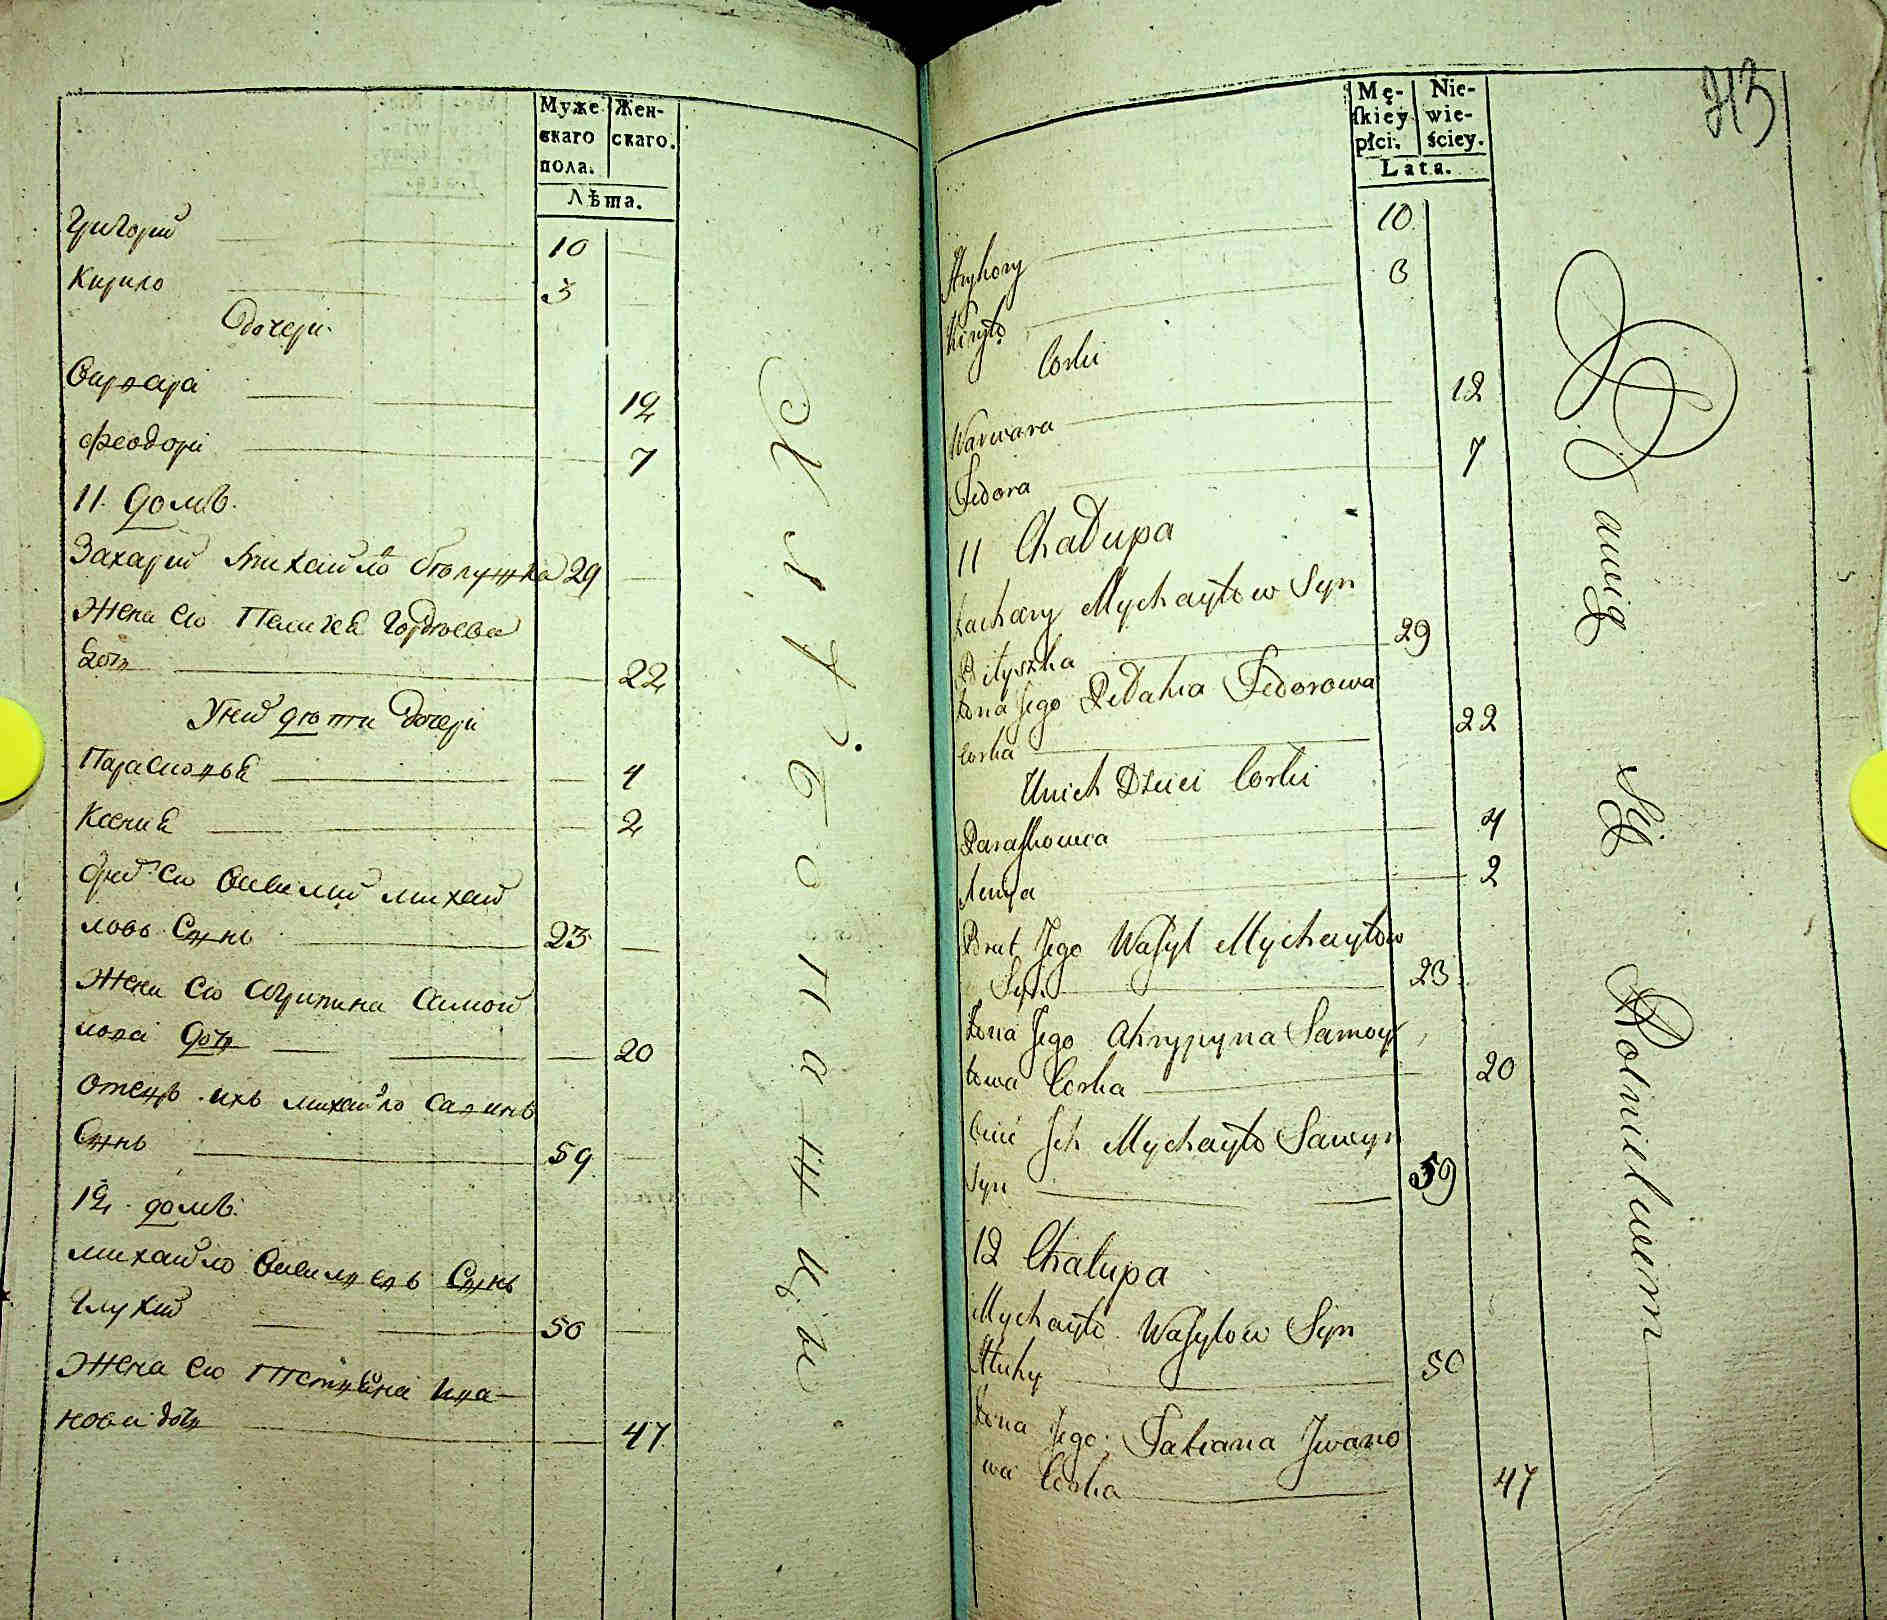 Муже
скаго
пола.
Жен-
скаго.
Лѣта.
Григорий 10
Кирило 3
Дочери
Варвара 12
Феодора 7
11. Домъ.
Захарий Михайло 29
Жена Его Пелагея Гордеева
Дочь 22
У них дети Дочери
Парасковья 4
Ксения 2
Брат Его Василий Михай
ловъ Сынъ 23
Жена Его Агрипина Самой
лова Дочь 20
Отецъ ихъ Михайло Савинъ
Сынъ 59
12. домъ.
Михайло Васильевъ Сынъ
Глухий 50
Жена Его Татьяна Ива-
нова дочь 47
Хлѣбопашцы
Mę-
skiey
płci.
Nie-
wie-
ściey.
Lata.
213
Hryhory 10
Kiryło 3
Corki
Warwara 12
Fedora 7
11 Chałupa
Zachary Mychayłow Syn
Bityszka 29
Żona Jego Pełahia Fedorowa
Corka 22
U nich Dzieci Corki
Paraskowia 4
2
Brat Jego Wasyl Mychayłow
Syn 23
Żona Jego Ahrypyna Samoy
łowa Corka 20
Ociec Jch Mychayło Sawyn
Syn 59
12 Chałupa
Mychayło Wasylow Syn
Hłuhy 50
Żona Jego Tatiana Jwano
wa Corka 47
Bawią Się Rolnictwem